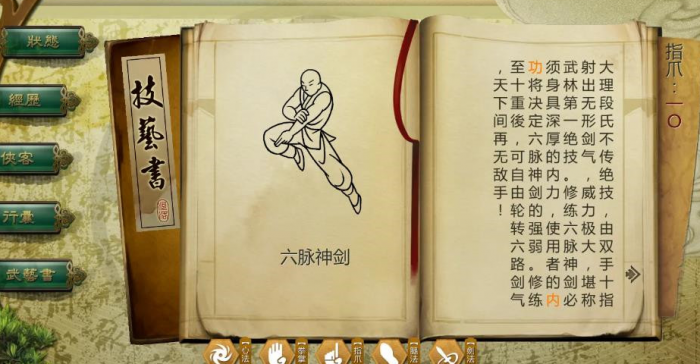 狀態
經歷
俠客
行囊
武藝書
技藝書
六脉神剑
指爪：一〇
大理段氏不传绝技，由双手十指
射出无形剑气，威力极大，堪称
武林第一绝技。修练六脉神剑必
须身具深厚的内力，使用者的内
功将决定六脉神剑的强弱。修练
至十重後，可自由轮转六路剑气
，天下间再无敌手！
【心法】
【拳掌】
【指爪】
【腿法】